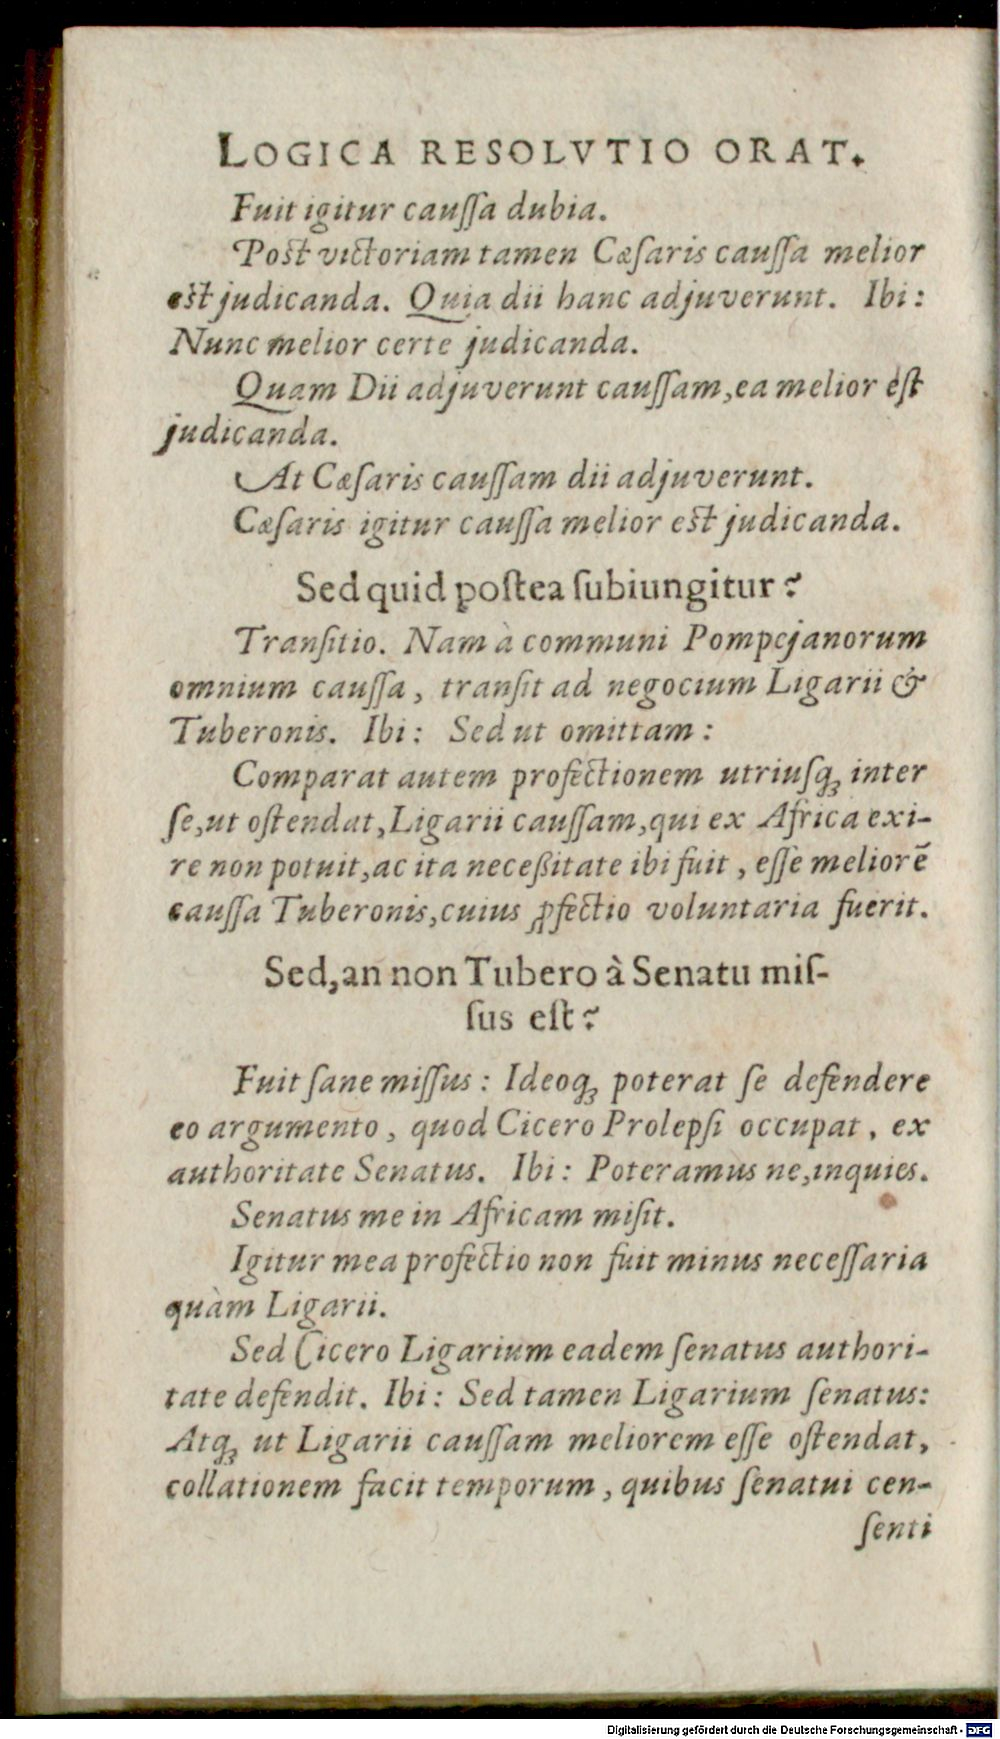 LOGICA RESOLVTIO ORAT.
Fuit igitur cauſſa dubia.
Poſt victoriam tamen Cæſaris cauſſa melior
eſt judicanda. Quia dii hanc adjuverunt. Ibi:
Nunc melior certe judicanda.
Quam Dii adjuverunt cauſſam, ea melior eſt
judicanda.
At Cæſaris cauſſam dii adjuverunt.
Cæſaris igitur cauſſa melior eſt judicanda.
Sed quid poſtea ſubiungitur?
Tranſitio. Nam à communi Pompejanorum
omnium cauſſa, tranſit ad negocium Ligarii &
Tuberonis. Ibi: Sed ut omittam:
Comparat autem profectionem utriuſq; inter
ſe, ut oſtendat, Ligarii cauſſam, qui ex Africa exi-
re non potuit, ac ita neceßitate ibi fuit, eſſe meliorē
cauſſa Tuberonis, cuius ꝓfectio voluntaria fuerit.
Sed, an non Tubero à Senatu miſ-
ſus eſt?
Fuit ſane miſſus: Ideoq; poterat ſe defendere
eo argumento, quod Cicero Prolepſi occupat, ex
authoritate Senatus. Ibi: Poteramus ne, inquies.
Senatus me in Africam miſit.
Igitur mea profectio non fuit minus neceſſaria
quàm Ligarii.
Sed Cicero Ligarium eadem ſenatus authori-
tate defendit. Ibi: Sed tamen Ligarium ſenatus:
Atq; ut Ligarii cauſſam meliorem eſſe oſtendat,
collationem facit temporum, quibus ſenatui cen-
ſenti
Digitalisierung gefördert durch die Deutsche Forschungsgemeinschaft - DFG